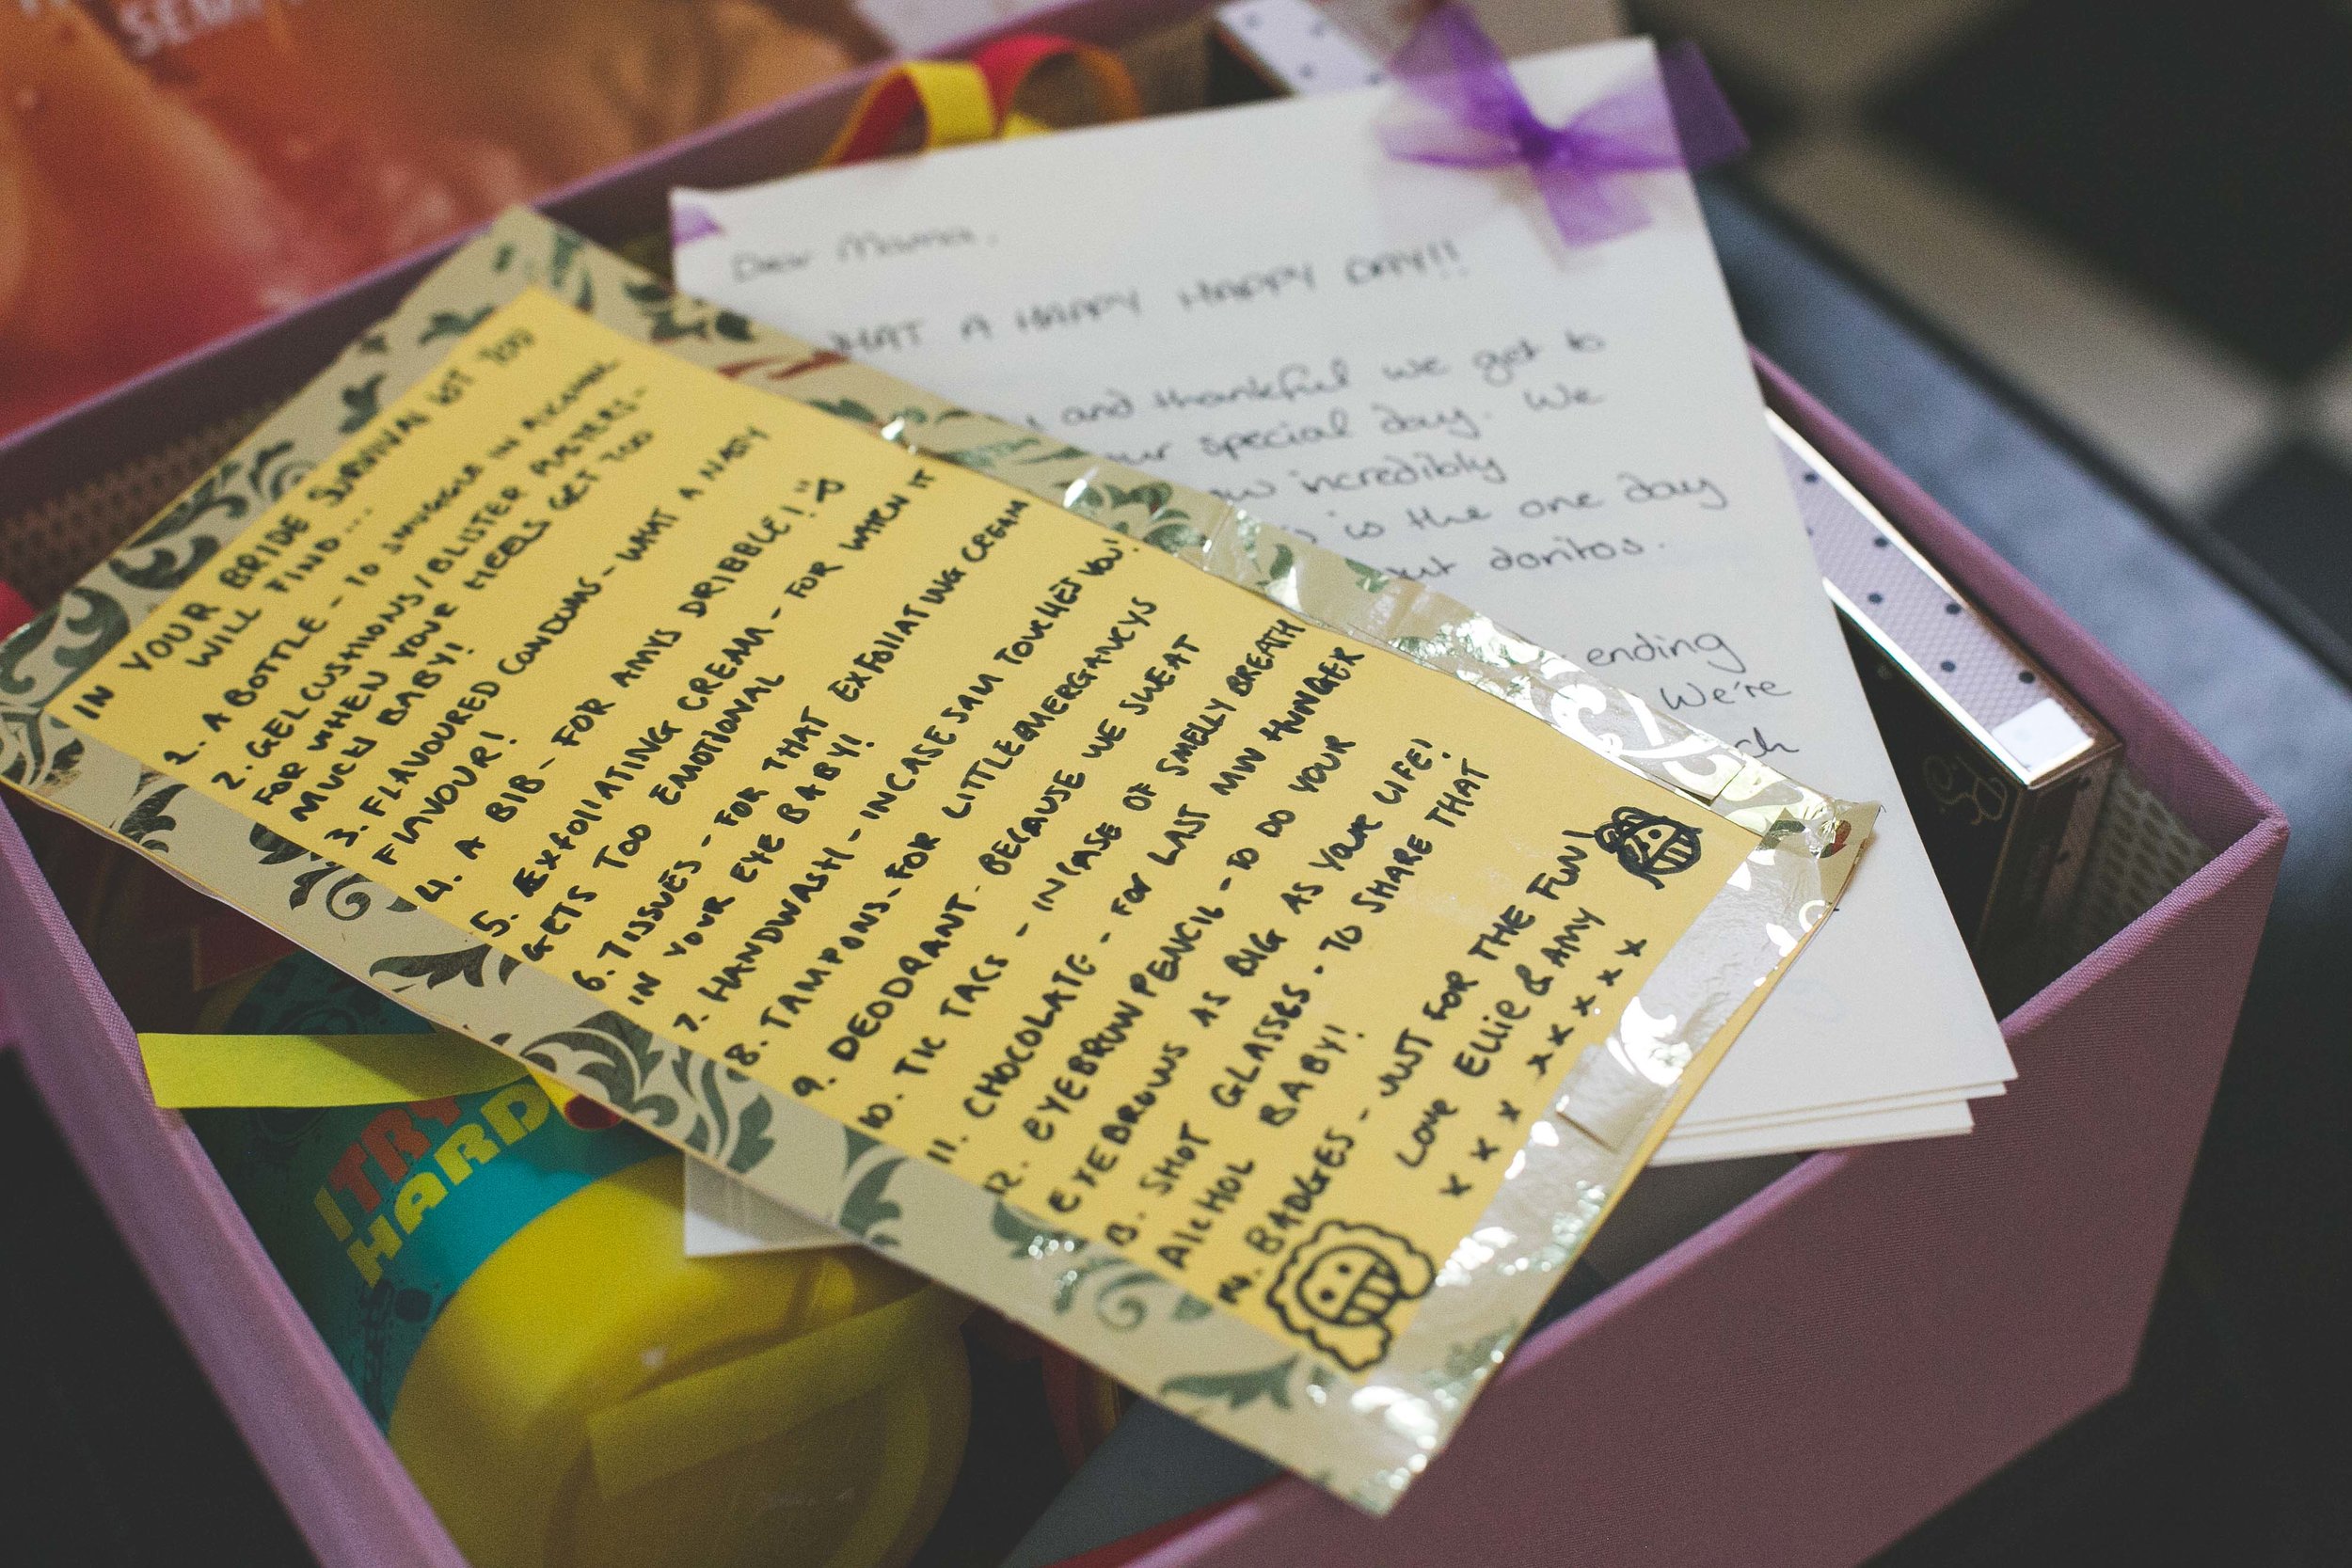 IN YOUR BRIDE SURVIVAL KIT YOO
WILL FIND...
1. A BOTTLE - TO SMUGGLE IN ALCOHOL
2. GEL CUSHIONS/BLISTER PLASTERS-
FOR WHEN YOUR HEELS GET TOO
MUCH BABY!
3. FLAVOURED CONDOMS - WHAT A NASTY
FLAVOUR!
4. A BIB - FOR AMYS DRIBBLE! :P
5. EXFOLIATING CREAM - FOR WHEN IT
GETS TOO EMOTIONAL
6. TISSUES - FOR THAT EXFOLIATING CREAM
IN YOUR EYE BABY!
7. HANDWASH - INCASE SAM TOUCHES YOU!
8. TAMPONS - FOR LITTLE EMERGANCYS
9. DEODRANT - BECAUSE WE SWEAT
10. TIC TACS - INCASE OF SMELLY BREATH
11. CHOCOLATE - FOR LAST MIN HUNGER
12. EYEBRUN PENCIL - TO DO YOUR
EYEBROWS AS BIG AS YOUR LIFE!
13. SHOT GLASSES - TO SHARE THAT
ALCHOL BABY!
14. BADGES - JUST FOR THE FUN!
LOVE ELLIE & AMY
x x x x x x x x
Dear Mama,
WHAT A HAPPY HAPPY DAY!!
and thankful we get to
special day. We
incredibly
is the one day
doritos.
ending
We're
I TRY
HARD